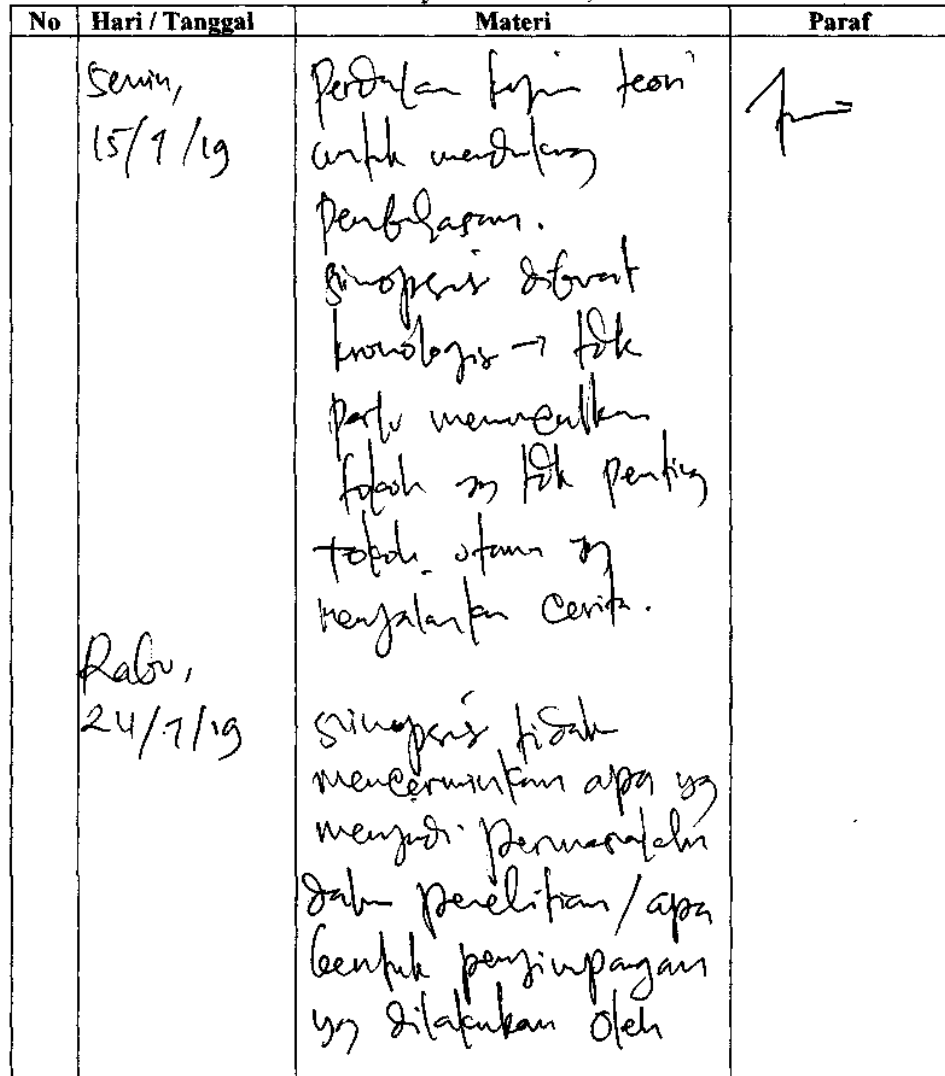 No Hari / Tanggal Materi Paraf
Senin,
15/7/19
Perdalam kajian teori
untuk mendukung
pembahasan.
sinopsis dibuat
kronologis → tdk
perlu memunculkan
tokoh yg tdk penting
tokoh utama yg
menjalankan cerita.
Rabu,
24/7/19
sinopsis tidak
mencerminkan apa yg
menjadi permasalahan
dalam penelitian/apa
bentuk penyimpangan
yg dilakukan oleh